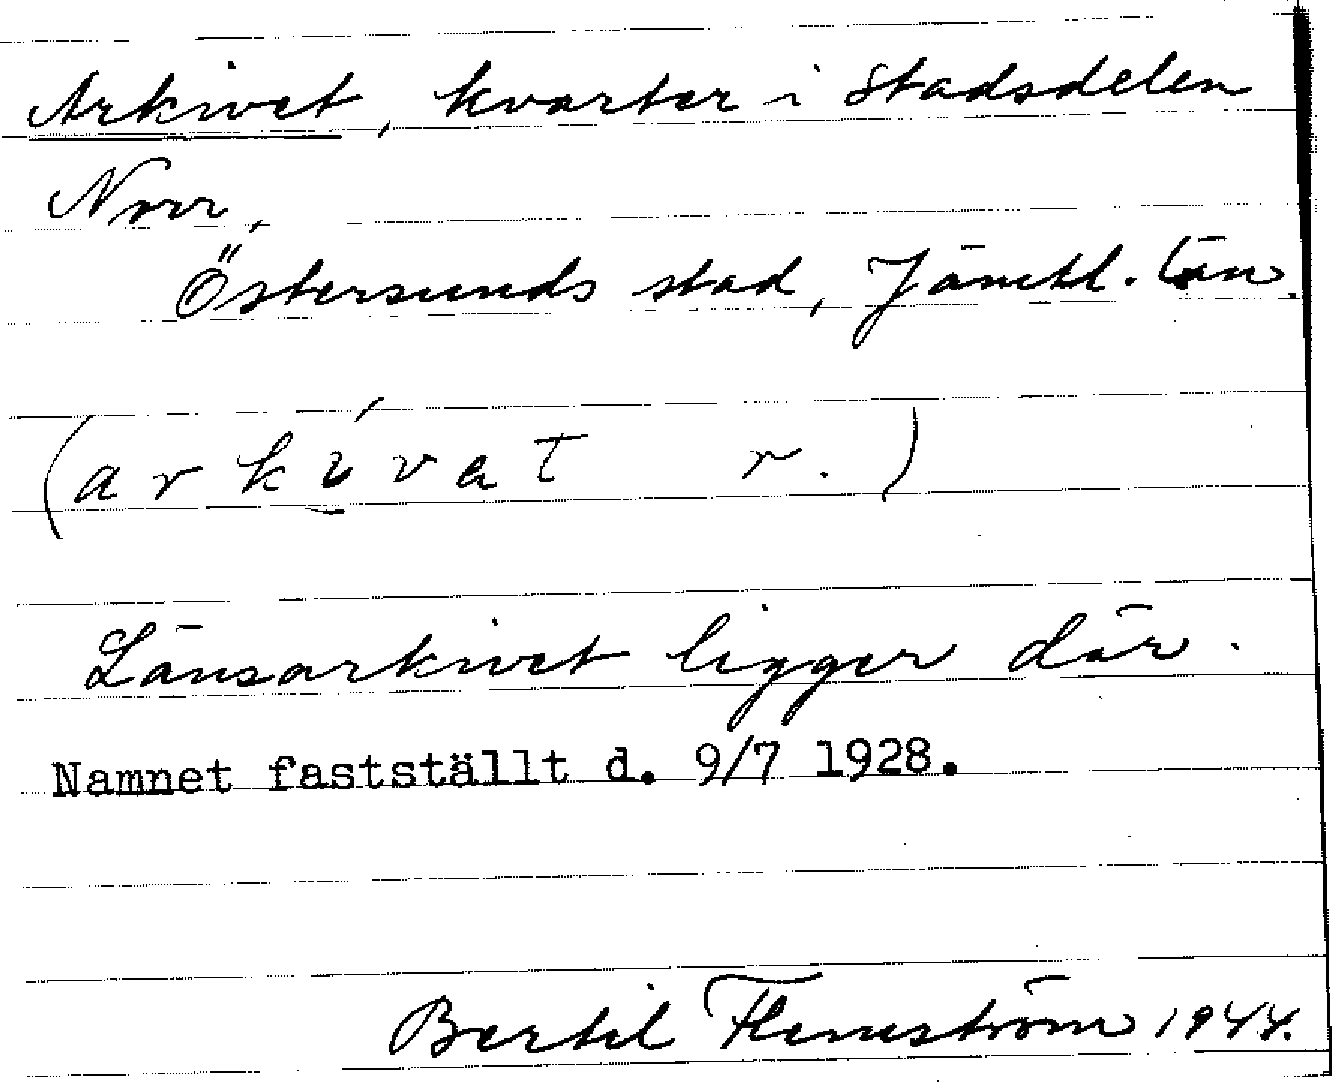 Arkivet, kvarter i stadsdelen
Norr,
Östersunds stad, Jämtl. län.
(arkívat r.)
Länsarkivet ligger där.
Namnet fastställt d. 9/7 1928.
Bertil Flemström 1944.